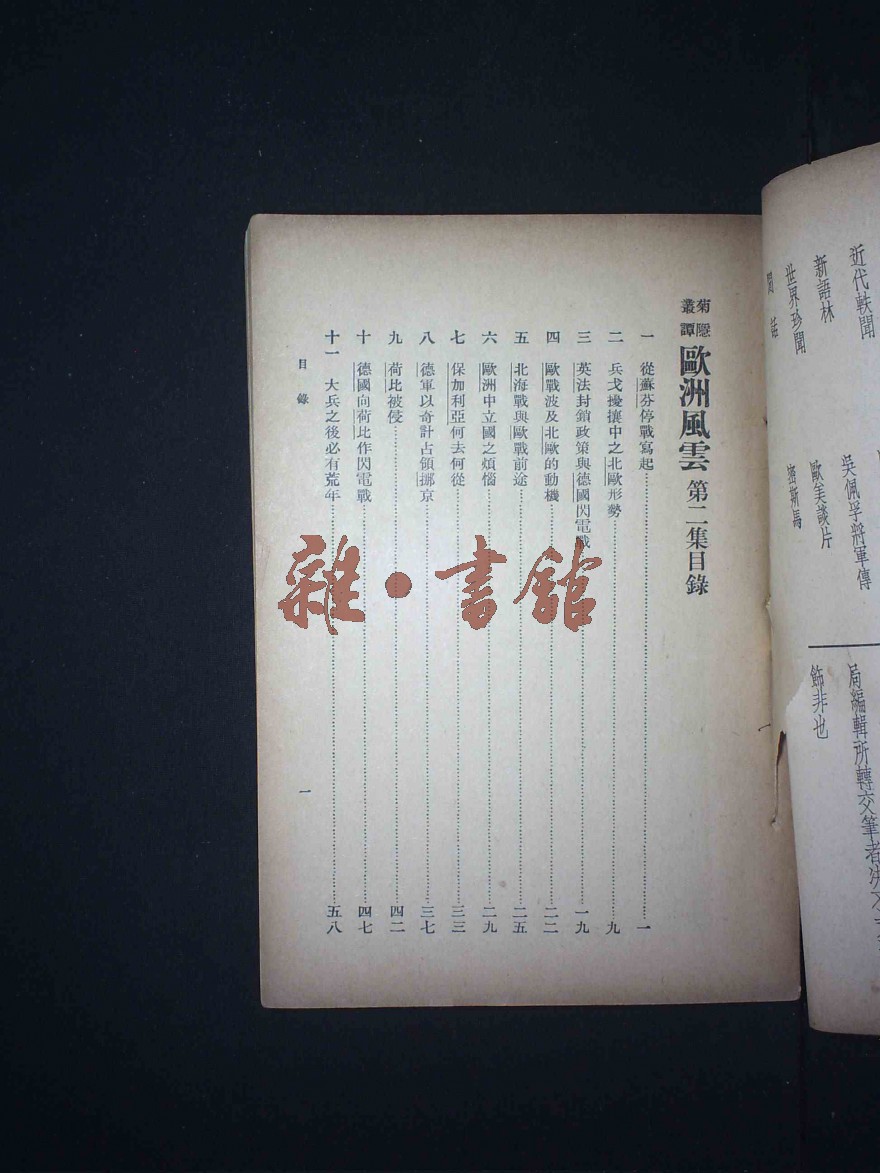 近代軼聞
新語林
世界珍聞
吳佩孚將軍傳
歐美談片
密斯馬
局編輯所轉交筆者
飾非也
菊隱叢譚 歐洲風雲 第二集目錄
一 從蘇芬停戰寫起 一
二 兵戈擾攘中之北歐形勢 九
三 英法封鎖政策與德國閃電戰 一九
四 歐戰波及北歐的動機 二二
五 北海戰與歐戰前途 二五
六 歐洲中立國之煩惱 二九
七 保加利亞何去何從 三三
八 德軍以奇計占領挪京 三七
九 荷比被侵 四二
十 德國向荷比作閃電戰 四七
十一 大兵之後必有荒年 五八
目錄
一
雜·書館